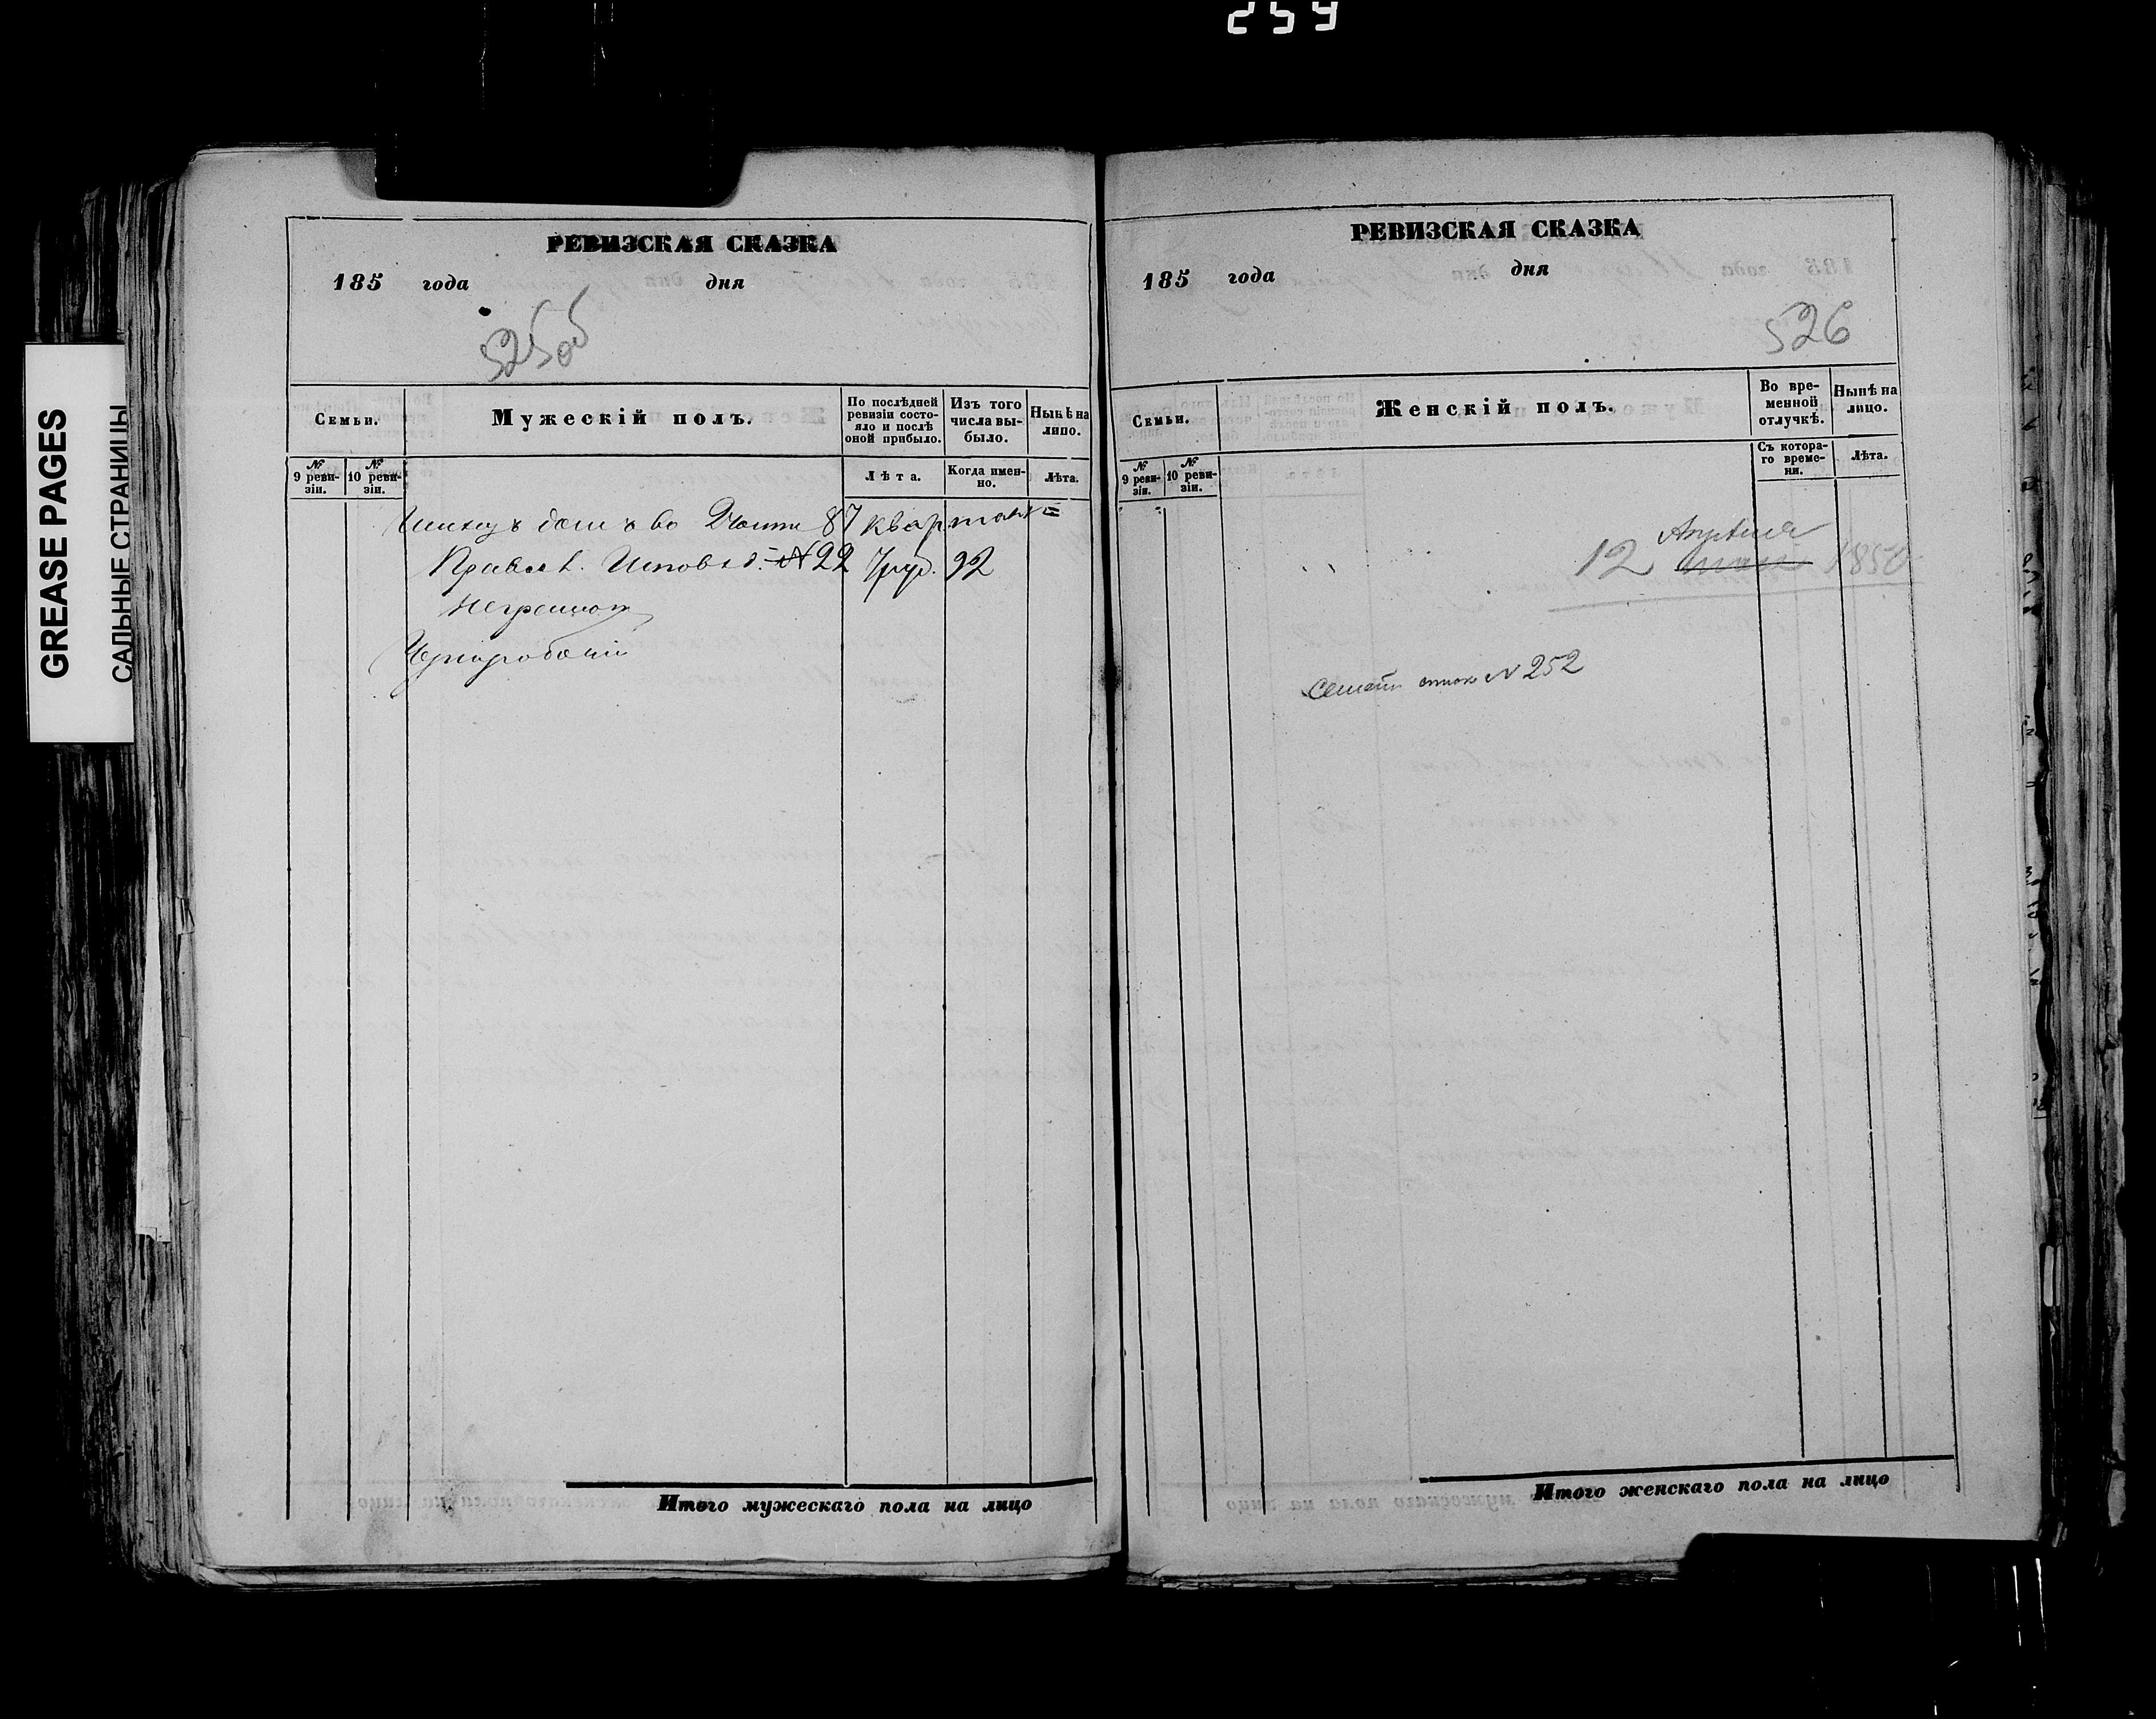 259
GREASE PAGES
САЛЬНЫЕ СТРАНИЦЫ
РЕВИЗСКАЯ СКАЗКА
185 года дня
525об
Семьи.
Мужескій полъ.
По послѣдней ревизіи состояло и послѣ оной прибыло.
Изъ того числа выбыло.
Нынѣ на лицо.
№ 9 ревизіи.
№ 10 ревизіи.
Лѣта.
Когда именно.
Лѣта.
домъ во 2 части 87 квартала
Правосл. Исповѣд. № 22 7 руб. 92
неграмот
Чернорабочій
Итого мужескаго пола на лицо
РЕВИЗСКАЯ СКАЗКА
185 года дня
526
Семьи.
Женскій полъ.
Во временной отлучкѣ.
Нынѣ на лицо.
№ 9 ревизіи.
№ 10 ревизіи.
Съ котораго времени.
Лѣта.
Апрѣля
12 1850
Семейн список № 252
Итого женскаго пола на лицо